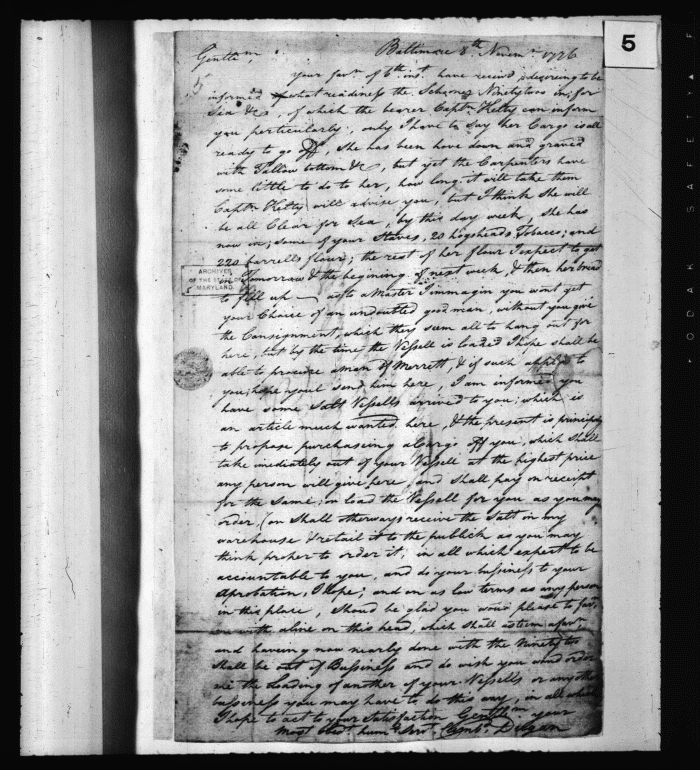 5
Gentlemn Baltimore 8th Novemr 1776
Your favr of 6th inst have receivd, desireing to be
informed of what readiness the Schooner Ninetytwo in, for
Sea &c, of which the bearer Captn Kelty can inform
you particularly, only I have to say her Cargo is all
ready to go off, She has been have down and graved
with Tallow bottom &c, but yet the Carpenters have
some little to do to her, how long it will take them
Captn Kelty will advise you, but I think She will
be all Clear for Sea, by this day week, She has
now in, some of your Staves, 20 hogsheads Tobacco, and
220 barrells flour; the rest of her flour I expect to get
in Tomorrow & the begining of next week, & then her bread
to fill up — as to a Master I immagin you wont get
your Choice of an undoubted good man, without you give
the Consignment, which they seem all to hang out for
here, but by the time, the Vessell is loaded I hope shall be
able to procure a man of Merrett, & if such applies to
you, hope youl send him here, I am informed you
have some Salt Vessells arrived to you; which is
an article much wanted here, & the present is principly
to propose purchaseing a Cargo off you, which shall
take imediately out of your Vessell at the highest price
any person will give here, and shall pay on receipt
for the Same; or load the Vessell for you as you may
order, (or shall otherways receive the Salt in my
warehouse & retail it to the publick as you may
think proper to order it, in all which expect to be
accountable to you, and do your bussiness to your
Aprobation, I hope; and on as low terms as any person
in this place, Should be glad you woud please to favr
me with a line on this head, which shall esteem a favr,
and haveing now nearly done with the Ninety two
shall be out of Bussiness and do wish you woud order
me the Loading of another of your Vessells or any other
bussiness you may have to do this way, in all which
I hope to act to your Satisfaction Gentlemn your
most Obedt humb Servt Ambs
ARCHIVES
OF THE STATE OF
MARYLAND